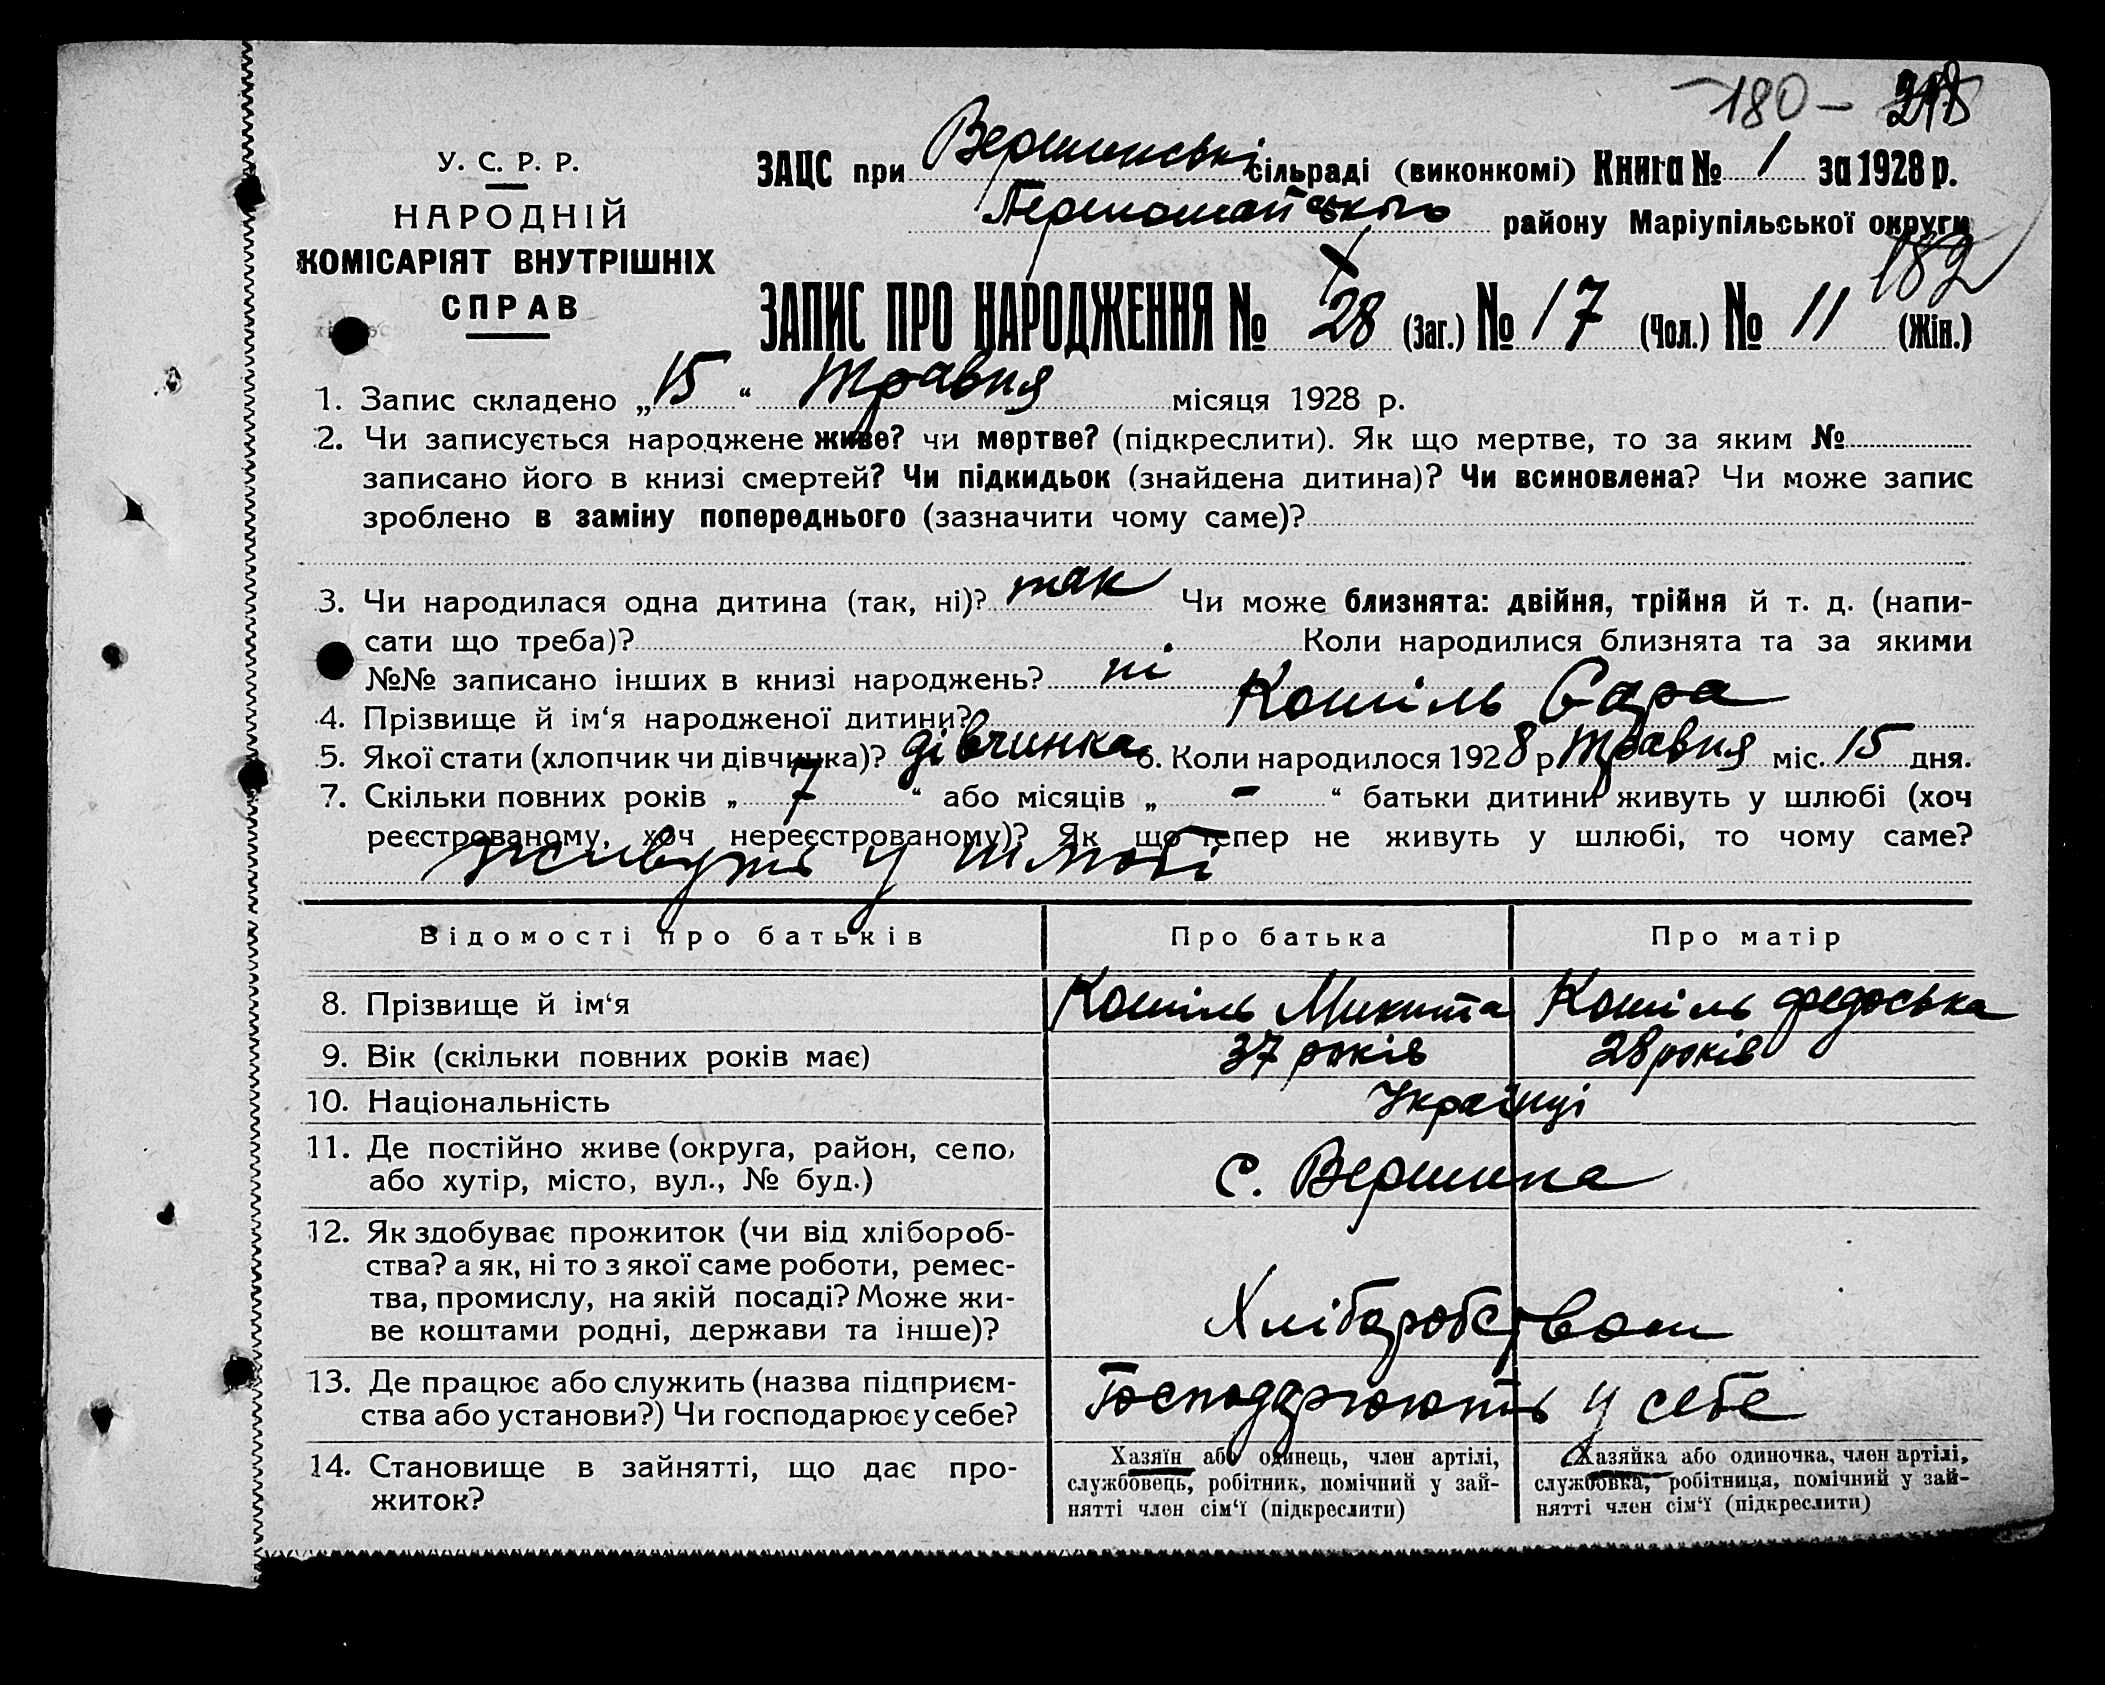 180 —
У. С. Р. Р.
НАРОДНІЙ
КОМІСАРІЯТ ВНУТРІШНІХ
СПРАВ
ЗАЦС при Вершинські сільраді (виконкомі) Книга № 1 за 1928 р.
Першомайського району Маріупільської округи
182
ЗАПИС ПРО НАРОДЖЕННЯ № 28 (Заг.) № 17 (Чол.) № 11 (Жін.)
1. Запис складено „15“ травня місяця 1928 р.
2. Чи записується народжене живе? чи мертве? (підкреслити). Як що мертве, то за яким №
записано його в книзі смертей? Чи підкидьок (знайдена дитина)? Чи всиновлена? Чи може запис
зроблено в заміну попереднього (зазначити чому саме)?
3. Чи народилася одна дитина (так, ні)? так Чи може близнята: двійня, трійня й т. д. (напи-
сати що треба)? Коли народилися близнята та за якими
№№ записано інших в книзі народжень? ні
4. Прізвище й ім‘я народженої дитини? Кошіль Сара
5. Якої стати (хлопчик чи дівчинка)? дівчинка 6. Коли народилося 1928 р. травня міс. 15 дня.
7. Скільки повних років „ 7 “ або місяців „ - “ батьки дитини живуть у шлюбі (хоч
реєстрованому, хоч нереєстрованому)? Як що тепер не живуть у шлюбі, то чому саме?
живуть у шлюбі
Відомості про батьків Про батька Про матір
8. Прізвище й ім‘я Кошіль Микита Кошіль Федоська
9. Вік (скільки повних років має) 37 років 28 років
10. Національність Українці
11. Де постійно живе (округа, район, село,
або хутір, місто, вул., № буд.) с. Вершина
12. Як здобуває прожиток (чи від хлібороб-
ства? а як, ні то з якої саме роботи, ремес-
тва, промислу, на якій посаді? Може жи-
ве коштами родні, держави та інше)? Хліборобством
13. Де працює або служить (назва підприєм-
ства або установи?) Чи господарює у себе? Господарюють у себе
14. Становище в зайнятті, що дає про-
житок?
Хазяїн або одинець, член артілі,
службовець, робітник, помічний у зай-
нятті член сім‘ї (підкреслити)
Хазяйка або одиночка, член артілі,
службовка, робітниця, помічний у зай-
нятті член сім‘ї (підкреслити)